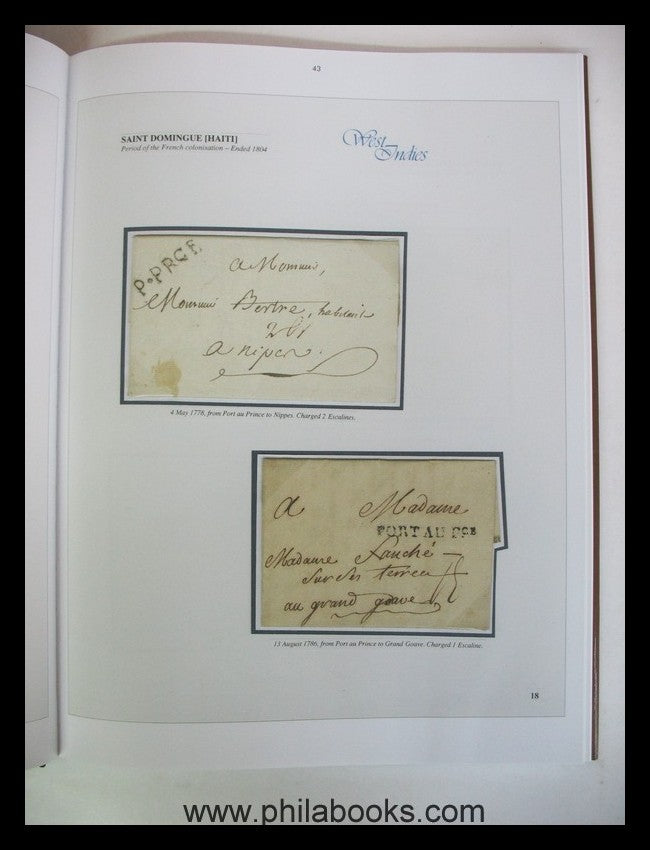 43
SAINT DOMINGUE [HAITI]
Period of the French colonisation – Ended 1804
West
Indies
P•PRCE
a Monsieur,
Monsieur Bertre, habitant
a nipes
4 May 1778, from Port au Prince to Nippes. Charged 2 Escalines.
a Madame
PORT AU PCE
Madame Fauché
Sur Ses terres
au grand goave
13 August 1786, from Port au Prince to Grand Goave. Charged 1 Escaline.
18
www.philabooks.com